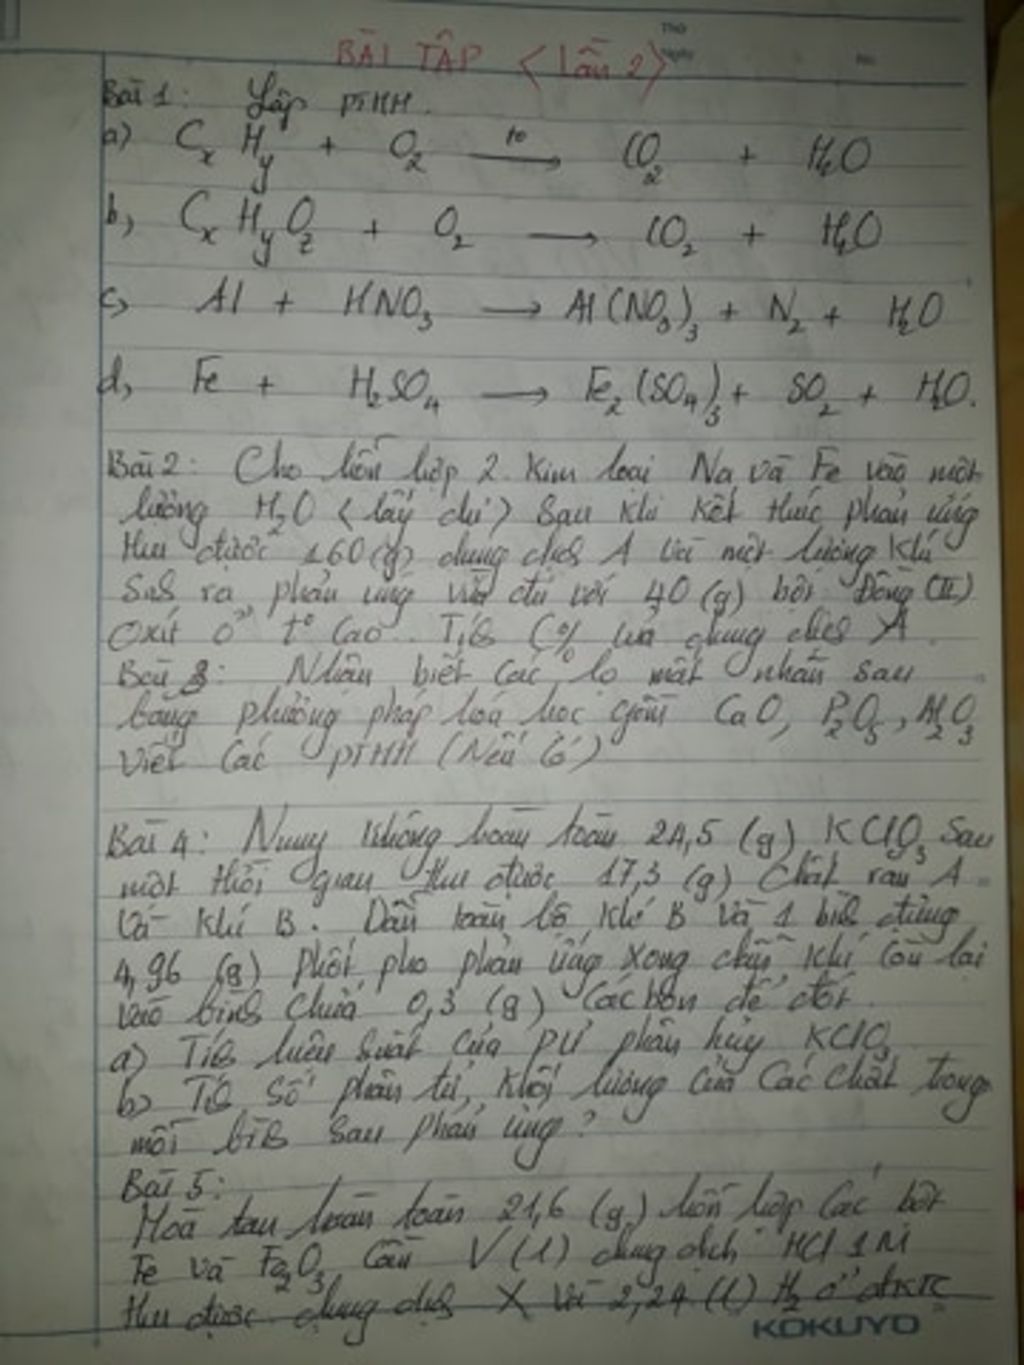 Thứ
Ngày
No.
BÀI TẬP < lần 2 >
Bài 1: Lập PTHH.
a) CxHy + O2 —t°→ CO2 + H2O
b, CxHyOz + O2 → CO2 + H2O
c, Al + HNO3 → Al(NO3)3 + N2 + H2O
d, Fe + H2SO4 → Fe2(SO4)3 + SO2 + H2O.
Bài 2: Cho hỗn hợp 2 kim loại Na và Fe vào một
lượng H2O < lấy dư > Sau khi kết thúc phản ứng
thu được 160 (g) dung dịch A và một lượng khí
Sinh ra phản ứng vừa đủ với 40 (g) bột Đồng (II)
Oxit ở t° cao. Tính C% của dung dịch A.
Bài 3: Nhận biết các lọ mất nhãn sau
bằng phương pháp hoá học gồm CaO, P2O5, Al2O3
viết các PTHH (Nếu có)
Bài 4: Nung không hoàn toàn 24,5 (g) KClO3 Sau
một thời gian thu được 17,3 (g) Chất rắn A
và khí B. Dẫn toàn bộ khí B và 1 bình đựng
4,96 (g) phốt pho phản ứng xong dẫn khí còn lại
vào bình chứa 0,3 (g) các bon để đốt.
a) Tính hiệu suất của PƯ phân hủy KClO3
b) Tính Số phân tử, khối lượng của các chất trong
mỗi bình sau phản ứng?
Bài 5:
Hoà tan hoàn toàn 21,6 (g) hỗn hợp các bột
Fe và Fe2O3 cần V (l) dung dịch HCl 1M
thu được dung dịch X và 2,24 (l) H2 ở đktc
KOKUYO